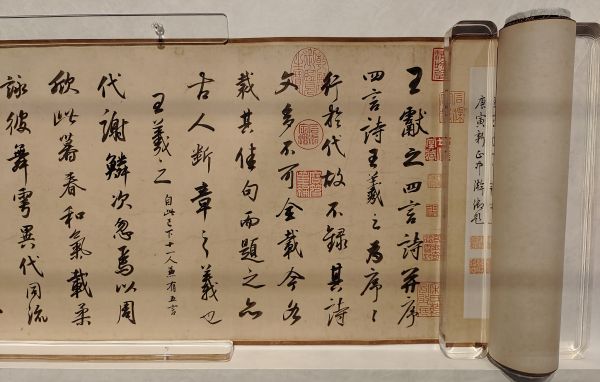 庚寅新正中澣御題
王獻之四言詩并序
四言詩王羲之為序〻
行於代故不錄其詩
文多不可全載今各
裁其佳句而題之亦
古人斷章之義也
王羲之 自此已下十一人並有五言
代謝鱗次忽焉以周
欣此暮春和氣載柔
詠彼舞雩異代同流